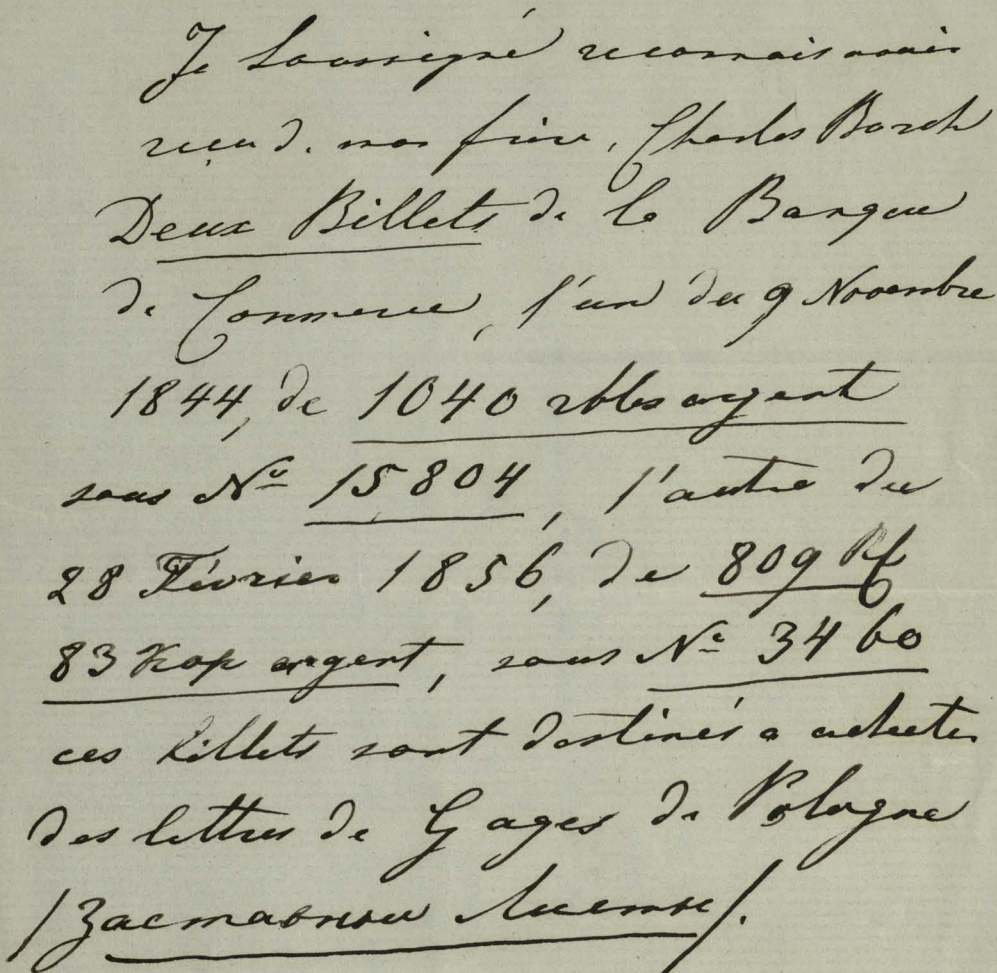 Je Soussigné reconnais avoir
reçu d. mon frère, Charles Borch
Deux Billets de la Banque
de Commerce, l'un du 9 Novembre
1844, de 1040 rbls argent
sous No 15804, l'autre du
28 Février 1856, de 809 Rf
83 Kop argent, sous No 3460
ces billets sont destinés a acheter
des lettres de Gages de Pologne
/Заставные Листы/.